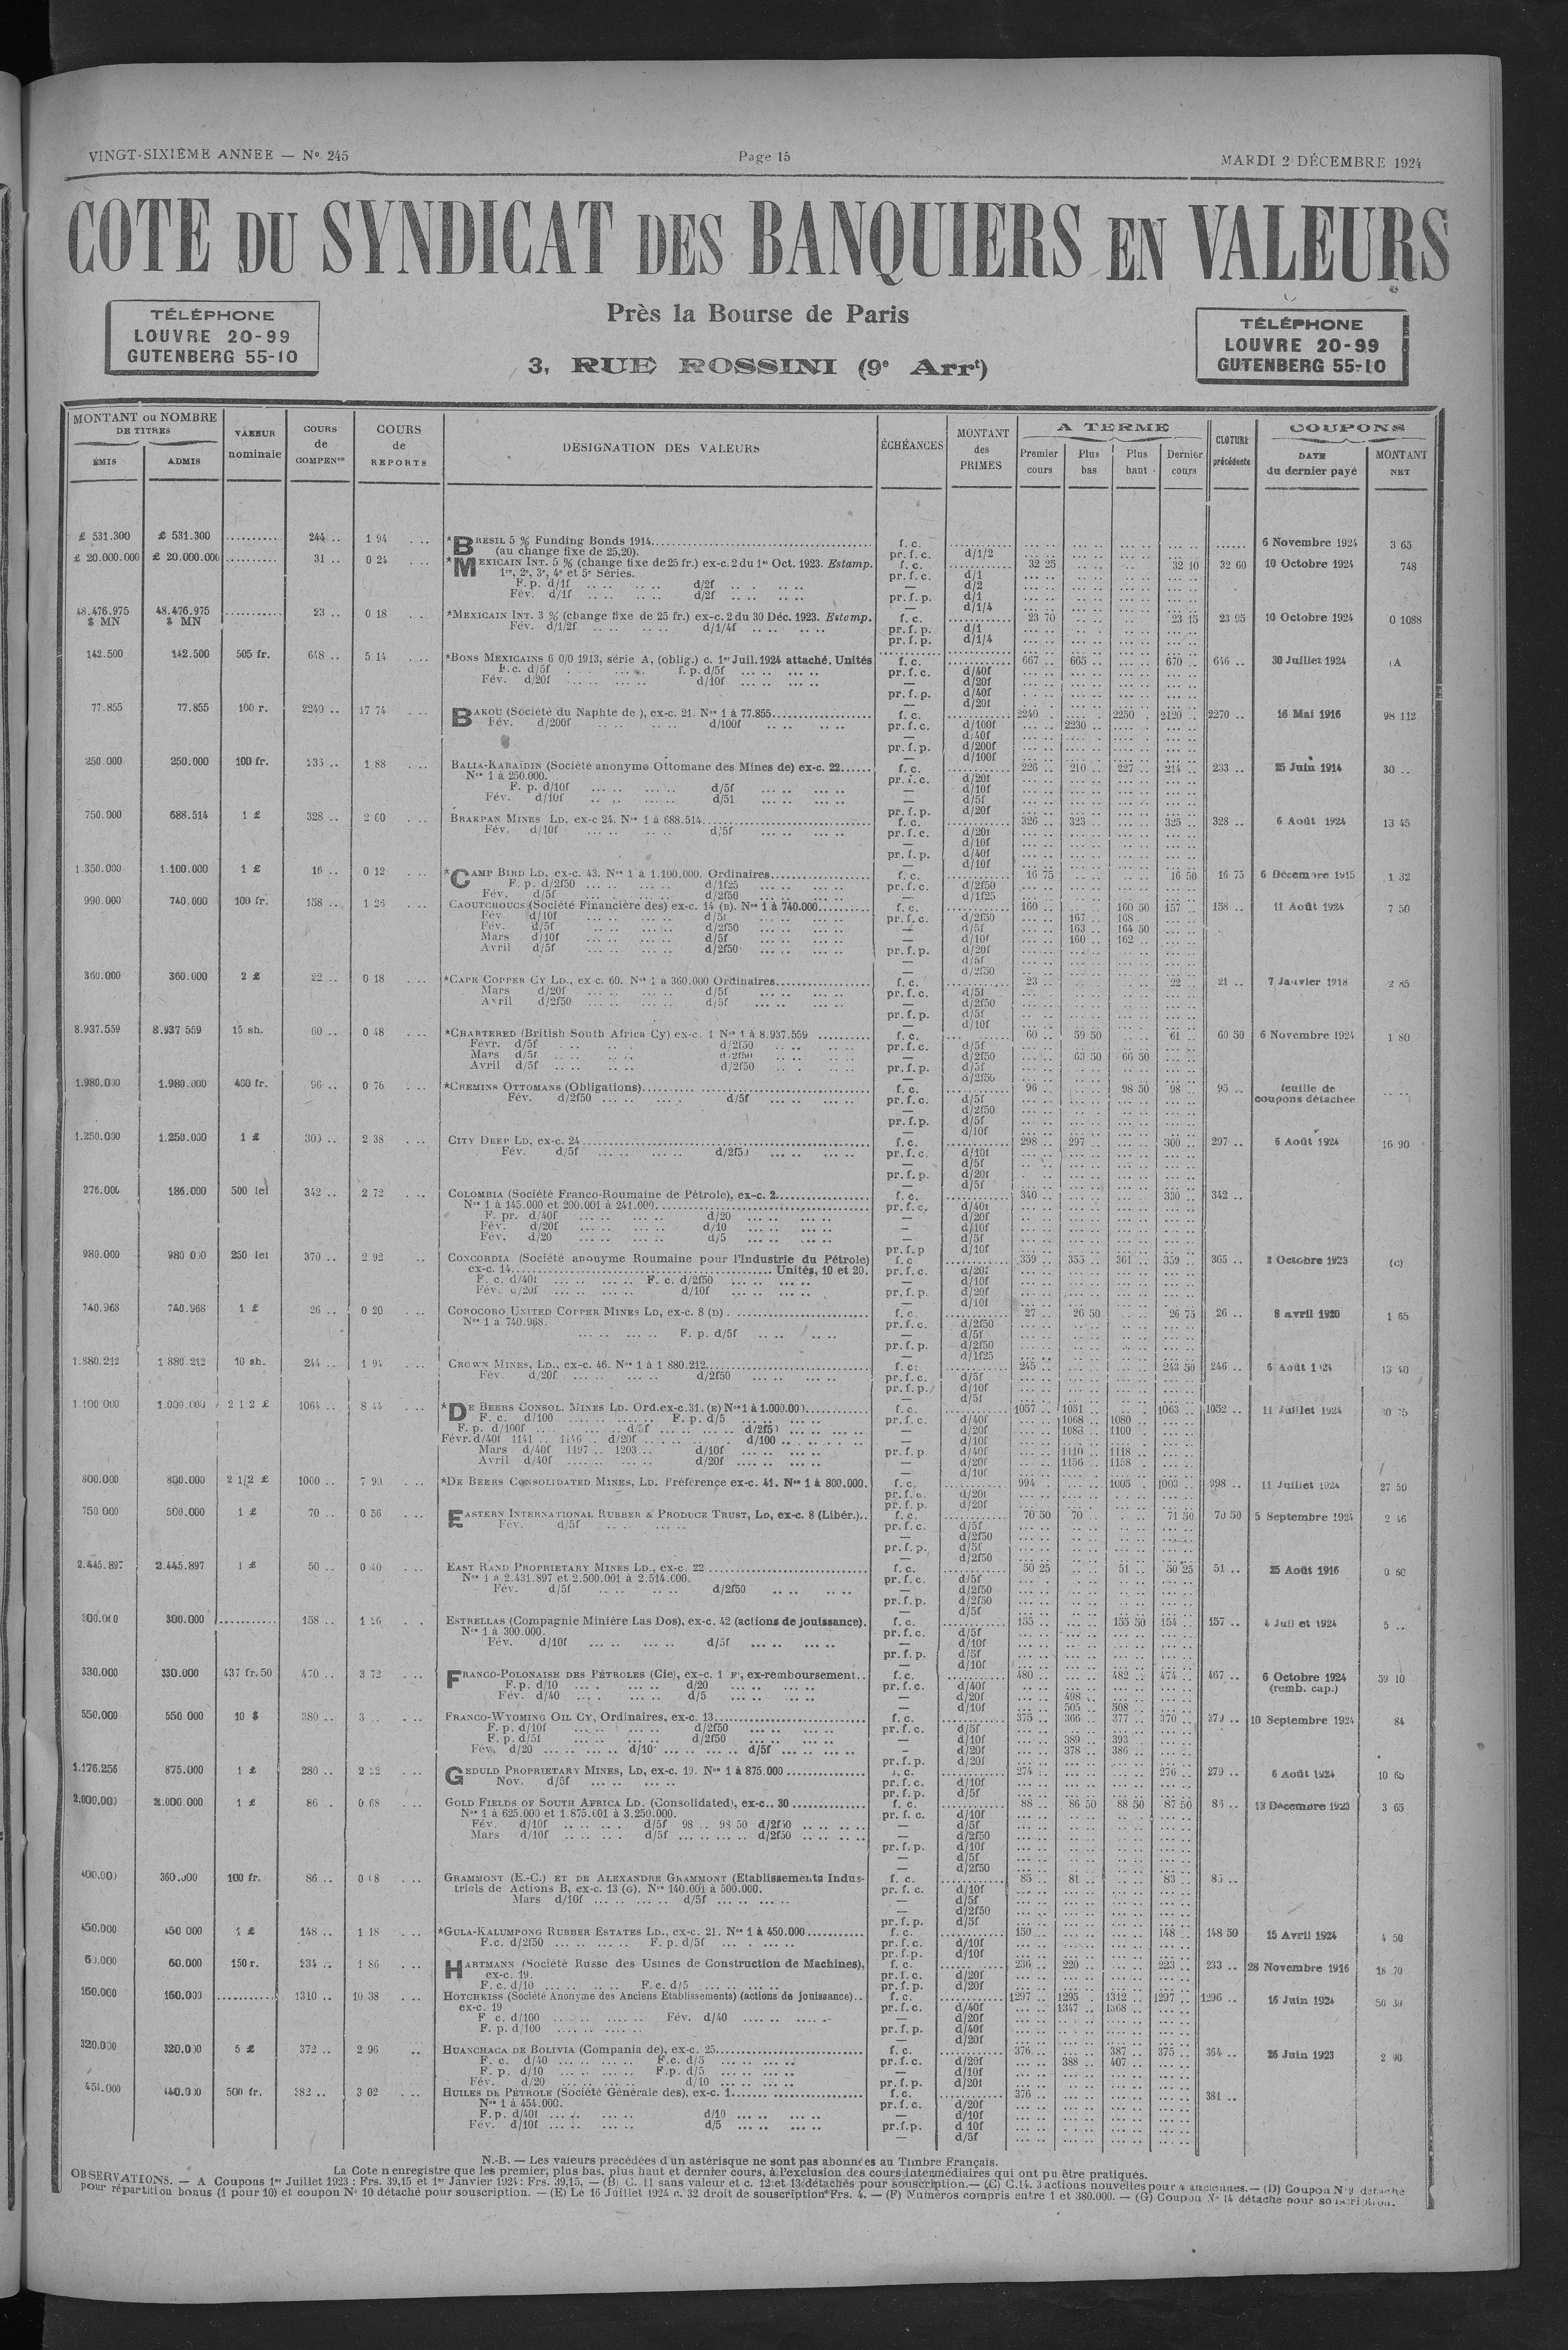 VINGT-SIXIÈME ANNEE — N° 245
Page 15
MARDI 2 DÉCEMBRE 1924
COTE DU SYNDICAT DES BANQUIERS EN VALEURS
TÉLÉPHONE
LOUVRE 20-99
GUTENBERG 55-10
Près la Bourse de Paris
3, RUE ROSSINI (9e Arrt)
TÉLÉPHONE
LOUVRE 20-99
GUTENBERG 55-10
MONTANT ou NOMBRE DE TITRES
ÉMIS ADMIS
VALEUR nominale
COURS de COMPENon
COURS de REPORTS
DÉSIGNATION DES VALEURS
ÉCHÉANCES
MONTANT des PRIMES
A TERME
Premier cours Plus bas Plus haut Dernier cours
CLOTURE précédente
COUPONS
DATE du dernier payé MONTANT NET
£ 531.300 £ 531.300 .......... 244 .. 1 94 *BRESIL 5 % Funding Bonds 1914 f. c. 6 Novembre 1924 3 65
(au change fixe de 25,20). pr. f. c. d/1/2
£ 20.000.000 £ 20.000.000 .......... 31 .. 0 24 *MEXICAIN INT. 5 % (change fixe de 25 fr.) ex-c. 2 du 1er Oct. 1923. Estamp. f. c. 32 25 32 10 32 60 10 Octobre 1924 748
1re, 2e, 3e, 4e et 5e Séries. pr. f. c. d/1
F. p. d/1f d/2f — d/2
Fév. d/1f d/2f pr. f. p. d/1
— d/1/4
48.476.975 $ MN 48.476.975 $ MN .......... 23 .. 0 18 *MEXICAIN INT. 3 % (change fixe de 25 fr.) ex-c. 2 du 30 Déc. 1923. Estamp. f. c. 23 70 23 15 23 95 10 Octobre 1924 0 1088
Fév. d/1/2f d/1/4f pr. f. p. d/1
pr. f. p. d/1/4
142.500 142.500 505 fr. 648 .. 5 14 *BONS MEXICAINS 6 0/0 1913, série A, (oblig.) c. 1er Juil. 1924 attaché. Unités f. c. 667 .. 665 .. 670 .. 646 .. 30 Juillet 1924 (A
F. c. d/5f f. p. d/5f pr. f. c. d/40f
Fév. d/20f d/10f — d/20f
pr. f. p. d/40f
— d/20f
77.855 77.855 100 r. 2240 .. 17 74 BAKOU (Société du Naphte de ), ex-c. 21. Nos 1 à 77.855 f. c. 2240 . 2250 . 2120 .. 2270 .. 16 Mai 1916 98 112
Fév. d/200f d/100f pr. f. c. d/100f 2230 ..
— d/40f
pr. f. p. d/200f
— d/100f
250.000 250.000 100 fr. 235 .. 1 88 BALIA-KARAÏDIN (Société anonyme Ottomane des Mines de) ex-c. 22 f. c. 226 .. 210 .. 227 .. 214 .. 233 .. 25 Juin 1914 30 ..
Nos 1 à 250.000. pr. f. c. d/20f
F. p. d/10f d/5f — d/10f
Fév. d/10f d/5f — d/5f
pr. f. p. d/20f
750.000 688.514 1 £ 328 .. 2 60 BRAKPAN MINES LD, ex-c 24. Nos 1 à 688.514 f. c. 326 .. 323 .. 325 .. 328 .. 6 Août 1924 13 45
Fév. d/10f d/5f pr. f. c. d/20f
— d/10f
pr. f. p. d/40f
— d/10f
1.350.000 1.100.000 1 £ 16 .. 0 12 *CAMP BIRD LD, ex-c. 43. Nos 1 à 1.100.000. Ordinaires f. c. 16 75 16 50 16 75 6 Décembre 1915 1 32
F. p. d/2f50 d/1f25 pr. f. c. d/2f50
Fév. d/5f d/2f50 — d/1f25
990.000 740.000 100 fr. 158 .. 1 26 CAOUTCHOUCS (Société Financière des) ex-c. 14 (B). Nos 1 à 740.000 f. c. 160 .. 160 50 157 .. 158 .. 11 Août 1924 7 50
Fév. d/10f d/5f pr. f. c. d/2f50 167 .. 168
Fév. d/5f d/2f50 — d/5f 163 .. 164 50
Mars d/10f d/5f — d/10f 160 .. 162 ..
Avril d/5f d/2f50 pr. f. p. d/20f
— d/5f
— d/2f50
360.000 360.000 2 £ 22 .. 0 18 *CAPE COPPER CY LD., ex-c. 60. Nos 1 à 360.000 Ordinaires f. c. 23 .. 22 .. 21 .. 7 Janvier 1918 2 85
Mars d/20f d/5f pr. f. c. d/5f
Avril d/2f50 d/5f — d/2f50
pr. f. p. d/5f
— d/10f
8.937.559 8.937 559 15 sh. 60 .. 0 48 *CHARTERED (British South Africa Cy) ex-c. 1 Nos 1 à 8.937.559 f. c. 60 .. 59 50 61 .. 60 50 6 Novembre 1924 1 80
Févr. d/5f d/2f50 pr. f. c. d/5f
Mars d/5f d/2f50 — d/2f50 63 50 66 50
Avril d/5f d/2f50 pr. f. p. d/5f
— d/2f50
1.980.000 1.980.000 400 fr. 96 .. 0 76 *CHEMINS OTTOMANS (Obligations) f. c. 96 .. 98 50 98 .. 95 .. feuille de coupons détachée
Fév. d/2f50 d/5f pr. f. c. d/5f
— d/2f50
pr. f. p. d/5f
— d/10f
1.250.000 1.250.000 1 £ 300 .. 2 38 CITY DEEP LD, ex-c. 24 f. c. 298 .. 297 .. 300 .. 297 .. 6 Août 1924 16 90
Fév. d/5f d/2f50 pr. f. c. d/10f
— d/5f
pr. f. p. d/20f
— d/5f
276.000 186.000 500 lei 342 .. 2 72 COLOMBIA (Société Franco-Roumaine de Pétrole), ex-c. 2 f. c. 340 .. 330 .. 342 ..
Nos 1 à 145.000 et 200.001 à 241.000 pr. f. c. d/40f
F. pr. d/40f d/20 — d/20f
Fév. d/20f d/10 — d/10f
Fév. d/20 d/5 — d/5f
pr. f. p d/10f
980.000 980 000 250 lei 370 .. 2 92 CONCORDIA (Société anonyme Roumaine pour l'Industrie du Pétrole) f. c 359 .. 355 .. 361 .. 359 .. 365 .. 8 Octobre 1923 (c)
ex-c. 14 Unités, 10 et 20. pr. f. c. d/20f
F. c. d/40f F. c. d/2f50 — d/10f
Fév. d/20f d/10f pr. f. p. d/20f
— d/10f
740.968 740.968 1 £ 26 .. 0 20 COROCORO UNITED COPPER MINES LD, ex-c. 8 (D) f. c. 27 .. 26 50 26 75 26 .. 8 avril 1920 1 65
Nos 1 à 740.968. pr. f. c. d/2f50
F. p. d/5f — d/5f
pr. f. p. d/2f50
— d/1f25
1.880.212 1 880.212 10 sh. 244 .. 1 94 CROWN MINES, LD., ex-c. 46. Nos 1 à 1 880.212 f. c. 245 .. 243 50 246 .. 6 Août 13 40
Fév. d/20f d/2f50 pr. f. c. d/5f
pr. f. p. d/10f
d/5f
1.100 000 1.000.000 2 1/2 £ 1064 .. 8 44 *DE BEERS CONSOL. MINES LD. Ord. ex-c. 31. (E) Nos 1 à 1.000.000 f. c. 1057 .. 1051 .. 1063 .. 1052 .. 11 Juillet 1924
F. c. d/100 F. p. d/5 pr. f. c. d/40f 1068 .. 1080 ..
F. p. d/100f d/5f d/2f50 — d/20f 1083 .. 1100 ..
Févr. d/40f 1141 .. 1146 .. d/20f d/100 — d/10f
Mars d/40f 1197 .. 1203 .. d/10f pr. f. p d/40f 1110 .. 1118 ..
Avril d/40f d/20f — d/20f 1156 .. 1158 ..
— d/10f
800.000 800.000 2 1/2 £ 1000 .. 7 90 *DE BEERS CONSOLIDATED MINES, LD. Préférence ex-c. 41. Nos 1 à 800.000. f. c. 994 . 1005 . 1003 .. 998 .. 11 Juillet 1924 27 50
pr. f. c. d/20f
pr. f. p. d/20f
750 000 500.000 1 £ 70 .. 0 56 EASTERN INTERNATIONAL RUBBER & PRODUCE TRUST, LD, ex-c. 8 (Libér.) f. c. 70 50 70 .. 71 50 70 50 5 Septembre 1924 2 46
Fév. d/5f pr. f. c. d/5f
— d/2f50
pr. f. p. d/5f
— d/2f50
2.445.897 2.445.897 1 £ 50 .. 0 40 EAST RAND PROPRIETARY MINES LD., ex-c. 22 f. c. 50 25 51 .. 50 25 51 .. 25 Août 1916 0 60
Nos 1 à 2.431.897 et 2.500.001 à 2.514.000. pr. f. c. d/5f
Fév. d/5f d/2f50 — d/2f50
pr. f. p. d/2f50
— d/5f
300.000 300.000 .......... 158 .. 1 26 ESTRELLAS (Compagnie Minière Las Dos), ex-c. 42 (actions de jouissance). f. c. 155 .. 155 50 154 .. 157 .. 4 Juillet 1924 5 ..
Nos 1 à 300.000. pr. f. c. d/5f
Fév. d/10f d/5f — d/10f
pr. f. p. d/5f
— d/10f
330.000 330.000 437 fr. 50 470 .. 3 72 FRANCO-POLONAISE DES PÉTROLES (Cie), ex-c. 1 F, ex-remboursement f. c. 480 .. 482 .. 474 .. 467 .. 6 Octobre 1924 (remb. cap.) 59 10
F. p. d/10 d/20 pr. f. c. d/40f
Fév. d/40 d/5 — d/20f 498 ..
— d/10f 505 .. 508 ..
550.000 550 000 10 $ 380 .. 3 FRANCO-WYOMING OIL CY, Ordinaires, ex-c. 13 f. c. 375 .. 366 .. 377 .. 370 .. 379 .. 10 Septembre 1924 84
F. p. d/10f d/2f50 pr. f. c. d/5f
F. p. d/5f d/2f50 — d/10f 380 .. 393 ..
Fév. d/20 d/10 d/5f — d/20f 378 .. 386 ..
pr. f. p. d/20f
1.176.256 875.000 1 £ 280 .. 2 22 GEDULD PROPRIETARY MINES, LD, ex-c. 19. Nos 1 à 875.000 f. c. 274 .. 276 .. 279 .. 6 Août 1924 10 65
Nov. d/5f pr. f. c. d/10f
pr. f. p. d/5f
2.000.000 2.000.000 1 £ 86 . 0 68 GOLD FIELDS OF SOUTH AFRICA LD. (Consolidated), ex-c. 30 f. c. 88 .. 86 50 88 50 87 50 86 .. 13 Décembre 1923 3 65
Nos 1 à 625.000 et 1.875.001 à 3.250.000. pr. f. c. d/10f
Fév. d/10f d/5f 98 .. 98 50 d/2f50 — d/5f
Mars d/10f d/5f d/2f50 — d/2f50
pr. f. p. d/10f
— d/5f
— d/2f50
400.000 360.000 100 fr. 86 .. 0 68 GRAMMONT (E.-C.) ET DE ALEXANDRE GRAMMONT (Etablissements Indus- f. c. 85 .. 81 .. 83 .. 85 ..
triels de Actions B, ex-c. 13 (G). Nos 140.001 à 500.000. pr. f. c. d/10f
Mars d/10f d/5f — d/5f
— d/2f50
pr. f. p. d/5f
450.000 450 000 1 £ 148 .. 1 18 *GULA-KALUMPONG RUBBER ESTATES LD., ex-c. 21. Nos 1 à 450.000 f. c. 150 .. 148 .. 148 50 15 Avril 1924 4 50
F. c. d/2f50 F. p. d/5f pr. f. c. d/10f
pr. f. p. d/10f
60.000 60.000 150 r. 234 .. 1 86 HARTMANN (Société Russe des Usines de Construction de Machines), f. c. 236 .. 220 .. 223 .. 233 .. 28 Novembre 1916 18 70
ex-c. 19. pr. f. c. d/20f
F. c. d/10 F. c. d/5 pr. f. p. d/20f
160.000 160.000 .......... 1310 .. 10 38 HOTCHKISS (Société Anonyme des Anciens Etablissements) (actions de jouissance) f. c. 1297 .. 1295 . 1312 .. 1297 .. 1296 .. 16 Juin 1924 50 30
ex-c. 19 pr. f. c. d/40f 1347 .. 1368 ..
F c. d/100 Fév. d/40 — d/20f
F. p. d/100 pr. f. p. d/40f
— d/20f
320.000 320.000 5 £ 372 .. 2 96 HUANCHACA DE BOLIVIA (Compania de), ex-c. 25 f. c. 376 .. 387 .. 375 .. 364 .. 26 Juin 1923 2 90
F. c. d/40 F. c. d/5 pr. f. c. d/20f 388 .. 407 ..
F. p. d/10 F. p. d/5 — d/10f
Fév. d/20 d/10 pr. f. p. d/20f
454.000 440.000 500 fr. 382 .. 3 02 HUILES DE PÉTROLE (Société Générale des), ex-c. 1 f. c. 376 .. 381 ..
Nos 1 à 454.000. pr. f. c. d/20f
F. p. d/40f d/10 — d/10f
Fév. d/10f d/5 pr. f. p. d 10f
— d/5f
N.-B. — Les valeurs précédées d'un astérisque ne sont pas abonnées au Timbre Français.
La Cote n enregistre que les premier, plus bas, plus haut et dernier cours, à l'exclusion des cours intermédiaires qui ont pu être pratiqués.
OBSERVATIONS. — A Coupons 1er Juillet 1923 : Frs. 39,15 et 1er Janvier 1924 : Frs. 39,15, — (B) C. 11 sans valeur et c. 12 et 13 détachés pour souscription. — (C) C. 14. 3 actions nouvelles pour 4 anciennes. — (D) Coupon N° 9 détaché
pour répartition bonus (1 pour 10) et coupon N° 10 détaché pour souscription. — (E) Le 16 Juillet 1924 c. 32 droit de souscription Frs. 4. — (F) Numéros compris entre 1 et 380.000. — (G) Coupon N° 14 détaché pour souscription.